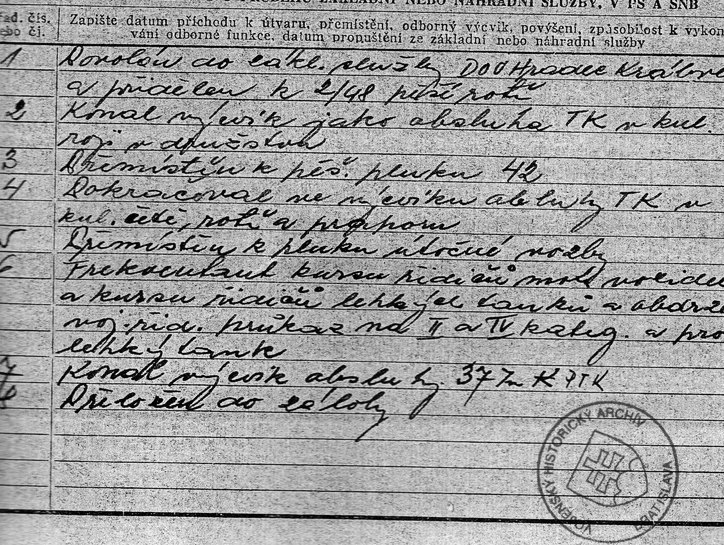 ZÁKLADNÍ NEBO NÁHRADNÍ SLUŽBY, V PS A SNB
řad. čís.
nebo čj.
Zapište datum příchodu k útvaru, přemístění, odborný výcvik, povýšení, způsobilost k vykoná
vání odborné funkce, datum propuštění ze základní nebo náhradní služby
1 Povolán do zákl. služby DOU Hradec Králové
a přidělen k 2/48 pěší rotě
2 Konal výcvik jako obsluha TK v kul.
roji v družstvu
3 Přemístěn k pěš. pluku 42
4 Pokračoval ve výcviku obsluhy TK v
kul. četě, rotě a praporu
5 Přemístěn k pluku útočné vozby
6 Frekventant kursu řidičů mot. vozidel
a kursu řidičů lehkých tanků a obdrž
voj. řid. průkaz na II a IV kateg. a pro
lehký tank
7 Konal výcvik obsluhy 37 PTK
8 Přeložen do zálohy
VOJENSKÝ HISTORICKÝ ARCHIV
BRATISLAVA